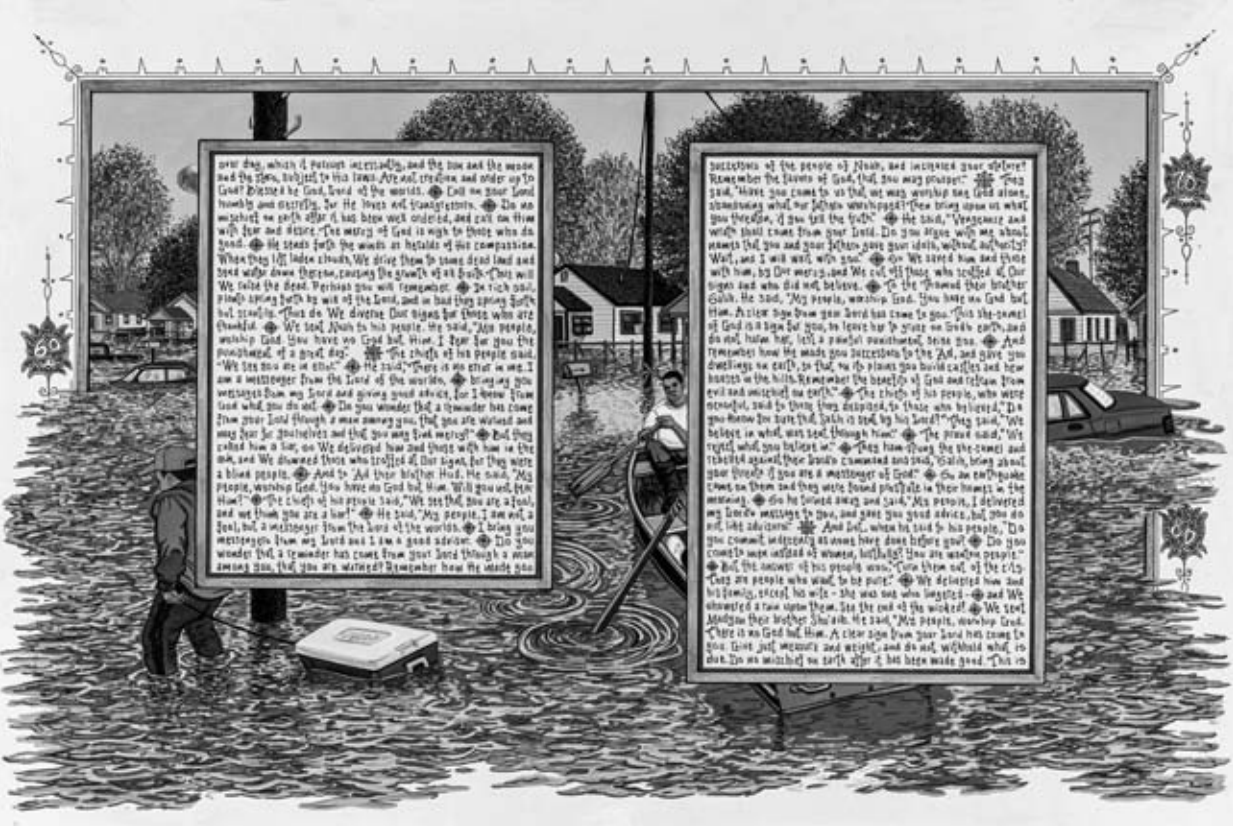 over day, which it pursues incessantly, and the sun and the moon
and the stars, subject to His laws. Are not creation and order up to
God? Blessed be God, Lord of the worlds. Call on your Lord
humbly and secretly, for He loves not transgressors. Do no
mischief on earth after it has been well ordered, and call on Him
with fear and desire. The mercy of God is nigh to those who do
good. He sends forth the winds as heralds of His compassion.
When they lift laden clouds, We drive them to some dead land and
send water down thereon, causing the growth of all fruits. Thus will
We raise the dead. Perhaps you will remember. In rich soil,
plants spring forth by will of the Lord, and in bad they spring forth
but scantily. Thus do We diverse Our signs for those who are
thankful. We sent Noah to his people. He said, "My people,
worship God. You have no God but Him. I fear for you the
punishment of a great day." The chiefs of his people said,
"We see you are in error." He said, "There is no error in me. I
am a messenger from the Lord of the worlds, bringing you
messages from my Lord and giving good advice, for I know from
God what you do not. Do you wonder that a reminder has come
from your Lord through a man among you, that you are warned and
may fear for yourselves and that you may find mercy?" But they
called him a liar, so We delivered him and those with him in the
ark, and We drowned those who scoffed at Our signs, for they were
a blind people. And to 'Ad their brother Hud. He said, "My
people, worship God. You have no God but Him. Will you not fear
Him?" The chiefs of his people said, "We see that you are a fool,
and we think you are a liar!" He said, "My people, I am not a
fool, but a messenger from the Lord of the worlds. I bring you
messages from my Lord and I am a good advisor. Do you
wonder that a reminder has come from your Lord through a man
among you, that you are warned? Remember how He made you
successors of the people of Noah, and increased your stature?
Remember the favors of God, that you may prosper." They
said, "Have you come to us that we may worship one God alone,
abandoning what our fathers worshipped? Then bring upon us what
you threaten, if you tell the truth." He said, "Vengeance and
wrath shall come from your Lord. Do you argue with me about
names that you and your fathers gave your idols, without authority?
Wait, and I will wait with you." So We saved him and those
with him, by Our mercy, and We cut off those who scoffed at Our
signs and who did not believe. To the Thamud their brother
Salih. He said, "My people, worship God. You have no God but
Him. A clear sign from your Lord has come to you. This she-camel
of God is a sign for you, so leave her to graze on God's earth, and
do not harm her, lest a painful punishment seize you. And
remember how He made you successors to the 'Ad, and gave you
dwellings on earth, so that on its plains you build castles and hew
houses in the hills. Remember the benefits of God and refrain from
evil and mischief on earth." The chiefs of his people, who were
scornful, said to those they despised, to those who believed, "Do
you know for sure that Salih is sent by his Lord?" They said, "We
believe in what was sent through him." The proud said, "We
reject what you believe in." They ham-strung the she-camel and
rebelled against their Lord's command and said, "Salih, bring about
your threats if you are a messenger of God." So an earthquake
came on them and they were found prostrate in their homes in the
morning. So he turned away and said, "My people, I delivered
my Lord's message to you, and gave you good advice, but you do
not like advisors." And Lot, when he said to his people, "Do
you commit indecency as none have done before you? Do you
come to men instead of women, lustfully? You are wanton people."
But the answer of his people was: "Turn them out of the city.
They are people who want to be pure." We delivered him and
his family, except his wife - she was one who lingered - and We
showered a rain upon them. See the end of the wicked! We sent
Madyan their brother Shu'aib. He said, "My people, worship God.
There is no God but Him. A clear sign from your Lord has come to
you. Give just measure and weight, and do not withhold what is
due. Do no mischief on earth after it has been made good. This is
60
70